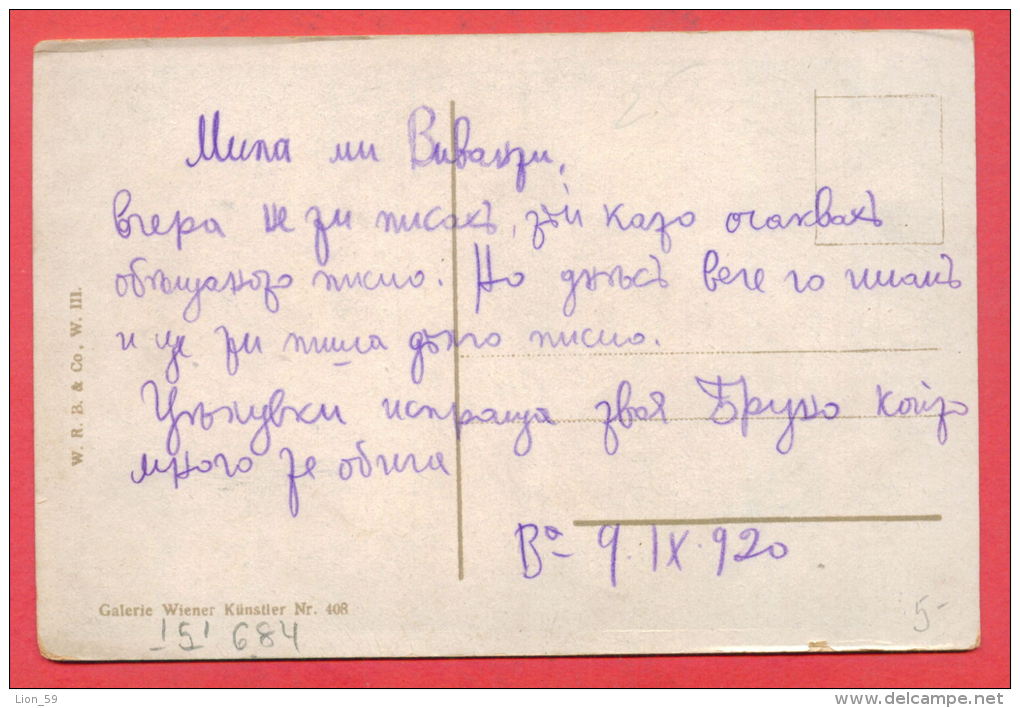 Мила ми Виванти,
вчера не ти писахъ, тъй като очаквахъ
обѣщаното писмо. Но днѣсъ вече го имамъ
и ще ти пиша дълго писмо.
Цѣлувки испраща твоя Бруно който
много те обича
Вª 9.IX.920
W. R. B. & Co, W. III.
Galerie Wiener Künstler Nr. 408
151 684
5-
Lion_59
www.delcampe.net